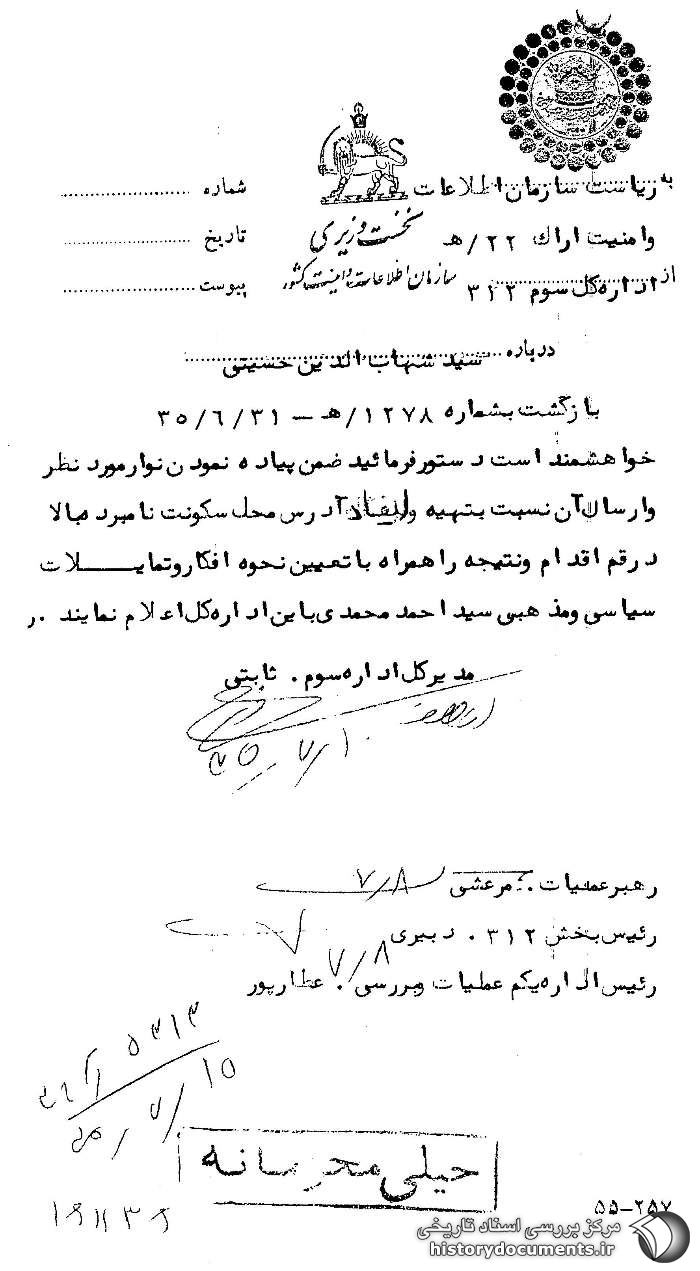 به ریاست سازمان اطلاعات
شماره
وامنیت اراک ۲۲/هـ
نخست وزیری
تاریخ
سازمان اطلاعات و امنیت کشور
از اداره کل سوم ۳۱۲
پیوست
درباره سید شهاب الدین حسینی
بازگشت بشماره ۱۲۷۸/هـ – ۳۵/۶/۳۱
خواهشمند است دستور فرمائید ضمن پیاده نمودن نوار مورد نظر
وارسال آن نسبت بتهیه و آدرس محل سکونت نامبرده بالا
درقم اقدام ونتیجه را همراه با تعیین نحوه افکار وتمایلات
سیاسی ومذهبی سید احمد محمدی باین اداره کل اعلام نمایند .ر
مدیرکل اداره سوم . ثابتی
۳۵/۷/۱۰
رهبر عملیات . مرعشی ۷/۸
رئیس بخش ۳۱۲ . دبیری
۷/۸
رئیس اداره یکم عملیات وبررسی . عطارپور
۳۵/۷/۱۵
خیلی محرمانه
۵۵-۲۵۷
مرکز بررسی اسناد تاریخی
historydocuments.ir